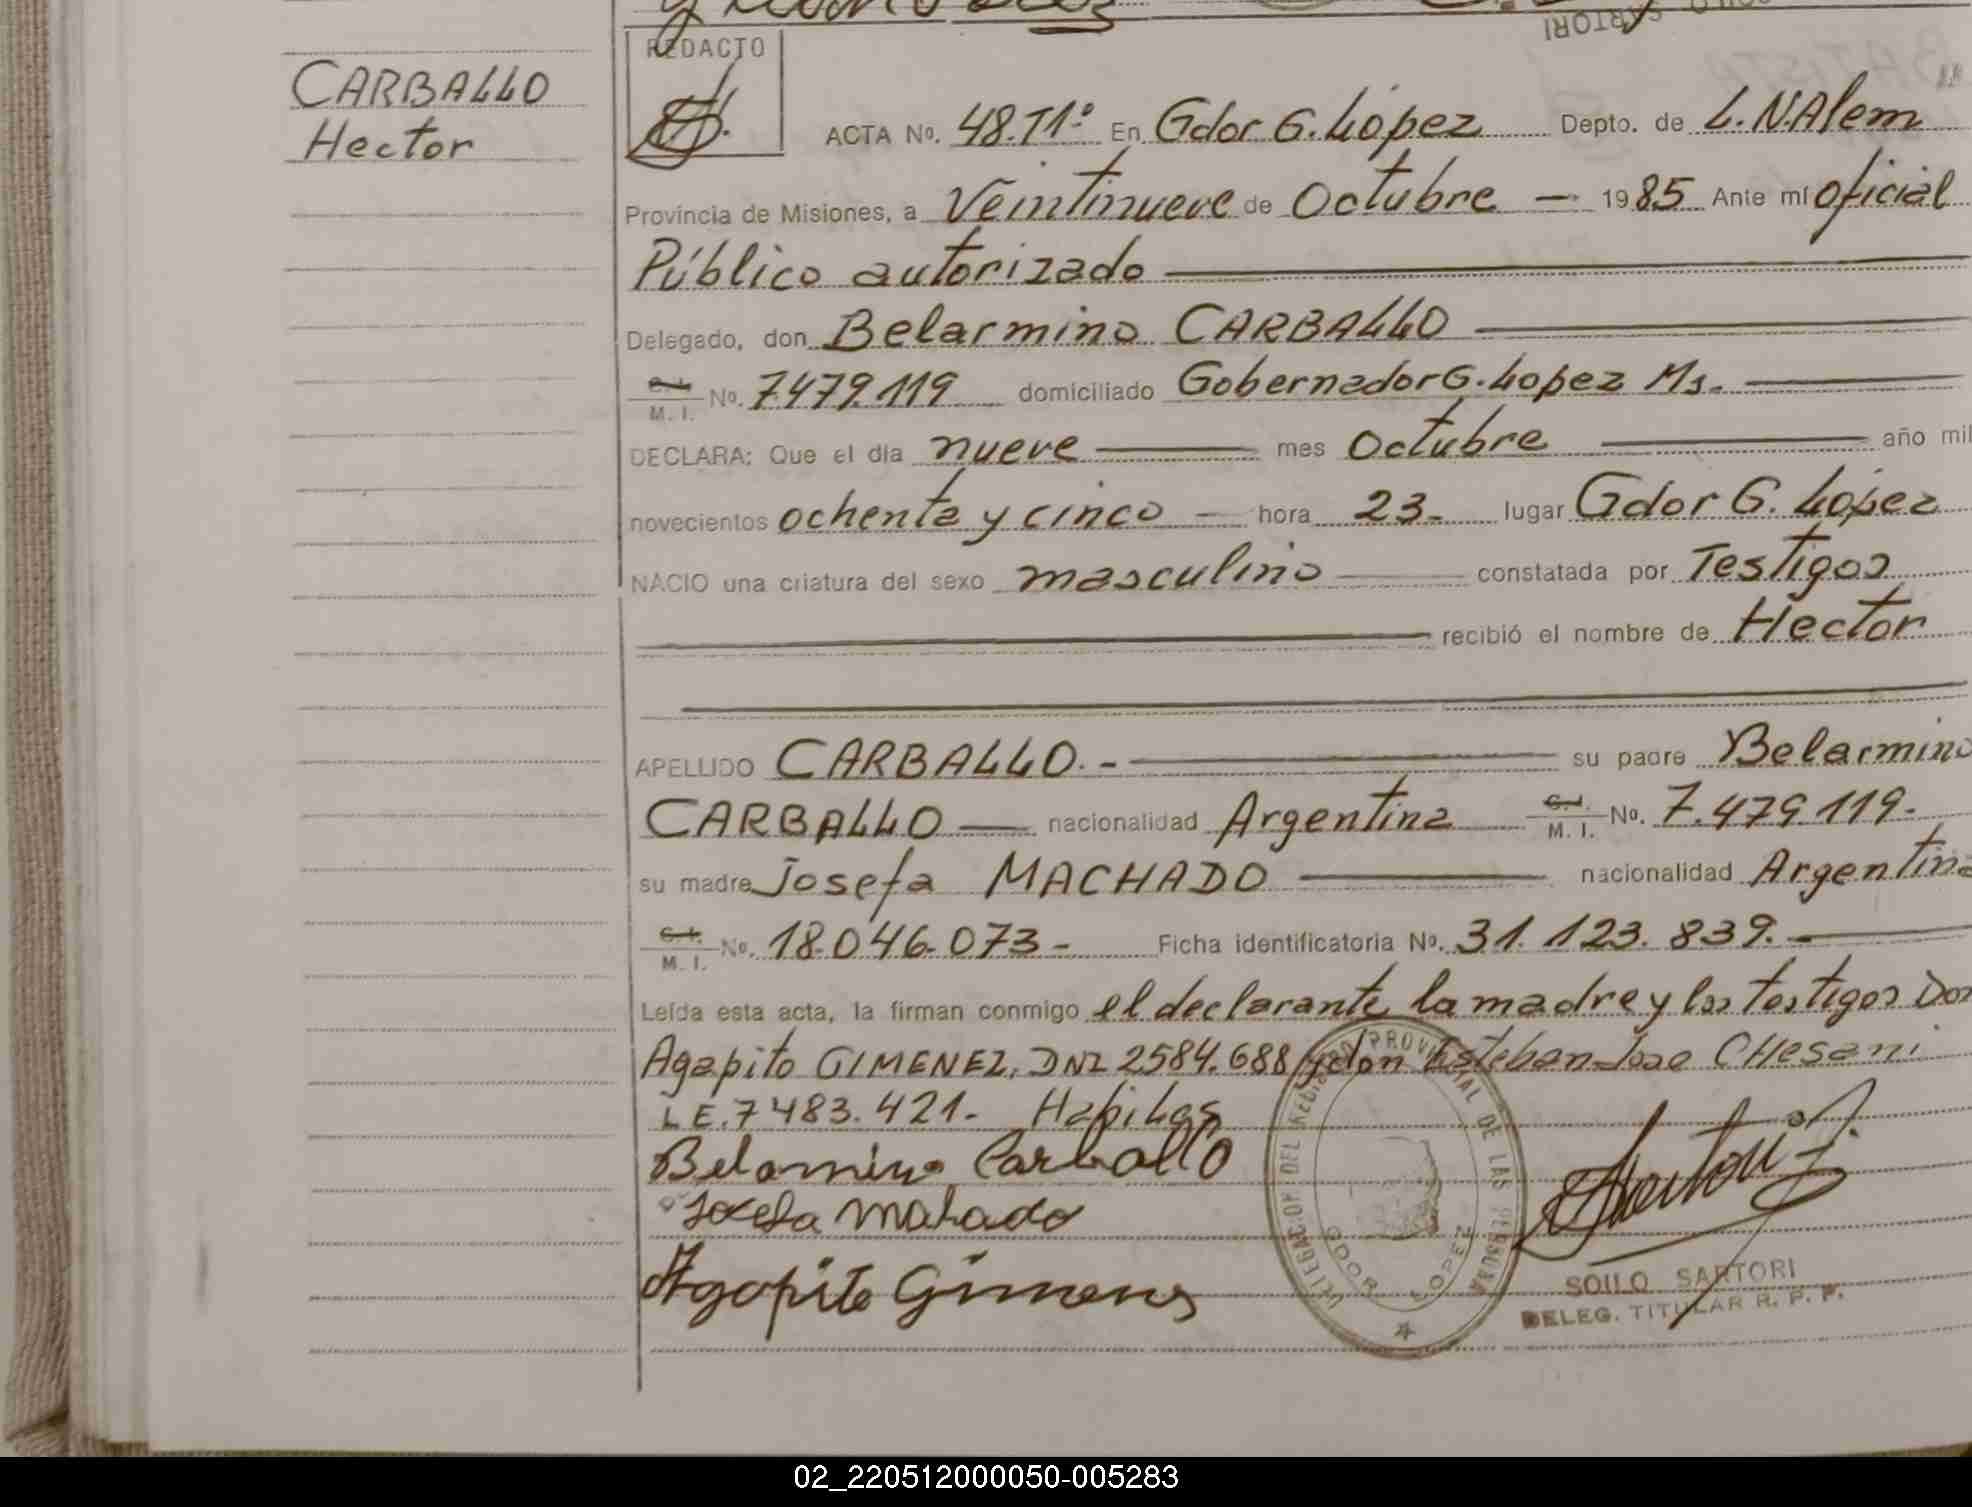 CARBALLO
Hector
REDACTO
ACTA No. 48.T1º En Gdor G. López Depto. de L. N. Alem
Provincia de Misiones, a Veintinueve de Octubre — 1985 Ante mí oficial
Público autorizado
Delegado, don Belarmino CARBALLO
C.I.
M. I. No. 7.479.119 domiciliado Gobernador G. Lopez Ms.
DECLARA: Que el día nueve mes Octubre año mil
novecientos ochenta y cinco — hora 23- lugar Gdor G. López
NACIO una criatura del sexo masculino constatada por Testigos
recibió el nombre de Hector
APELLIDO CARBALLO.- su padre Belarmino
CARBALLO — nacionalidad Argentina C.I. M. I. No. 7.479.119-
su madre Josefa MACHADO nacionalidad Argentina
C.I.
M. I. No. 18.046.073- Ficha identificatoria No. 31.123.839.-
Leída esta acta, la firman conmigo el declarante, la madre y los testigos Don
Agapito GIMENEZ, DNI 2584.688 y don Esteban Jose CHesani
LE. 7483.421-
Belarmino Carballo
Josefa Mahado
Agapito Gimenes
DELEGACION DEL REGISTRO PROVINCIAL DE LAS PERSONAS
GDOR LOPEZ
SOILO SARTORI
DELEG. TITULAR R. P. P.
02_220512000050-005283